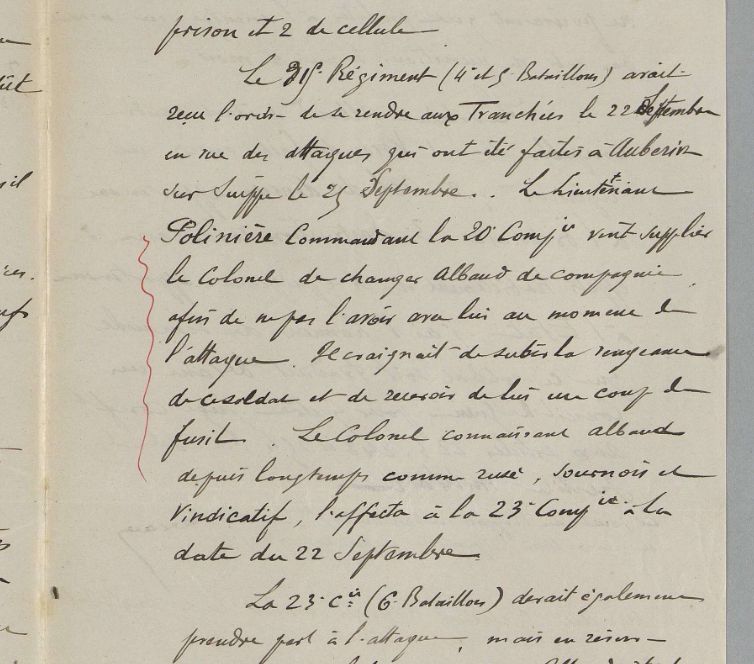 prison et 2 de cellule
Le 315e Régiment (4e et 5e Bataillons) avait
reçu l'ordre de se rendre aux Tranchées le 22 Septembre
en vue des attaques qui ont été faites à Auberive
sur Suippe le 25 Septembre. Le Lieutenant
Polinière Commandant la 20e Compie vint supplier
le Colonel de changer Albaud de compagnie
afin de ne pas l'avoir avec lui au moment de
l'attaque. Il craignait de subir la vengeance
de ce soldat et de recevoir de lui un coup de
fusil. Le Colonel connaissant Albaud
depuis longtemps comme rusé, sournois et
vindicatif, l'affecta à la 23e Compie à la
date du 22 Septembre
La 23e Cie (6e Bataillon) devait également
prendre part à l'attaque, mais en réserve